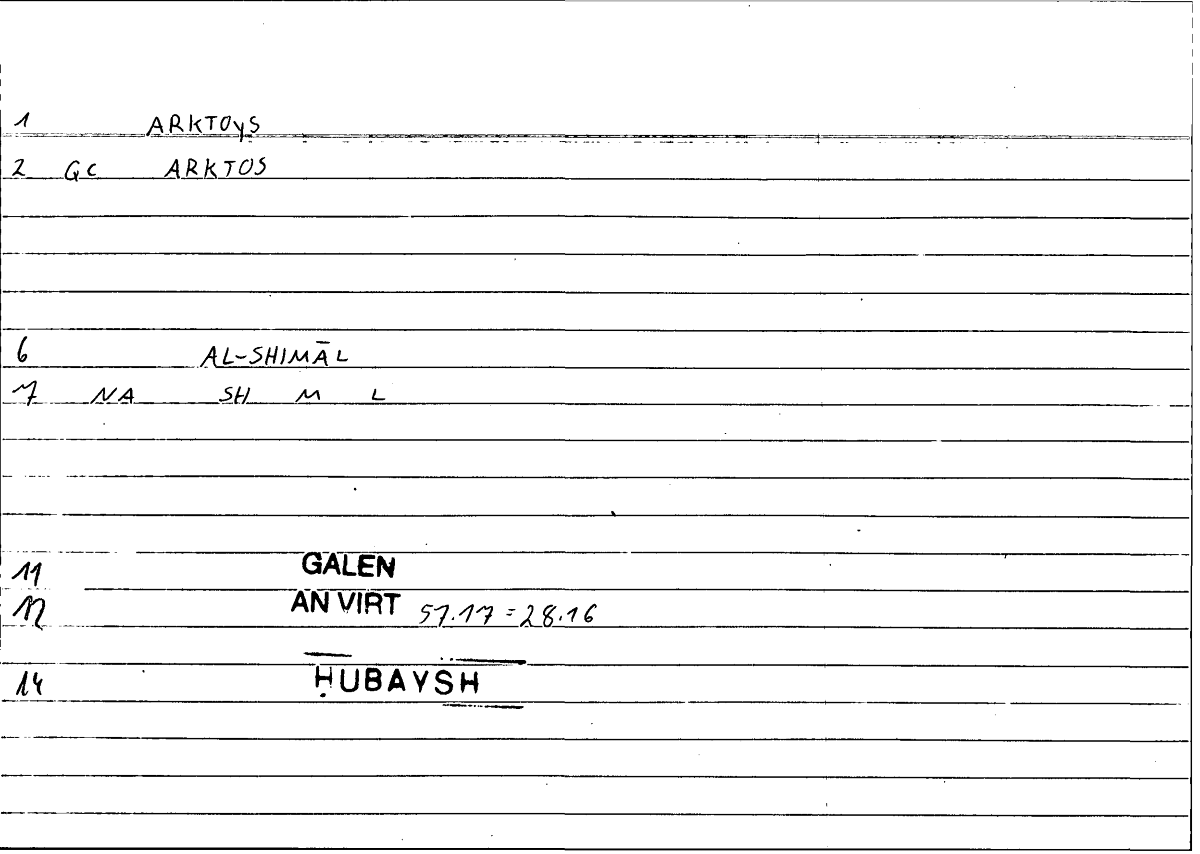 1 ARKTOYS
2 GC ARKTOS
6 AL-SHIMĀL
7 NA SH M L
11 GALEN
12 AN VIRT 57.17 = 28.16
14 ḤUBAYSH